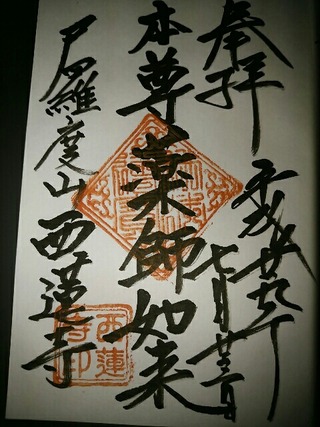 奉拝
平成廿九年
七月廿三日
本尊 薬師如来
尸羅度山 西蓮寺
西蓮
寺印